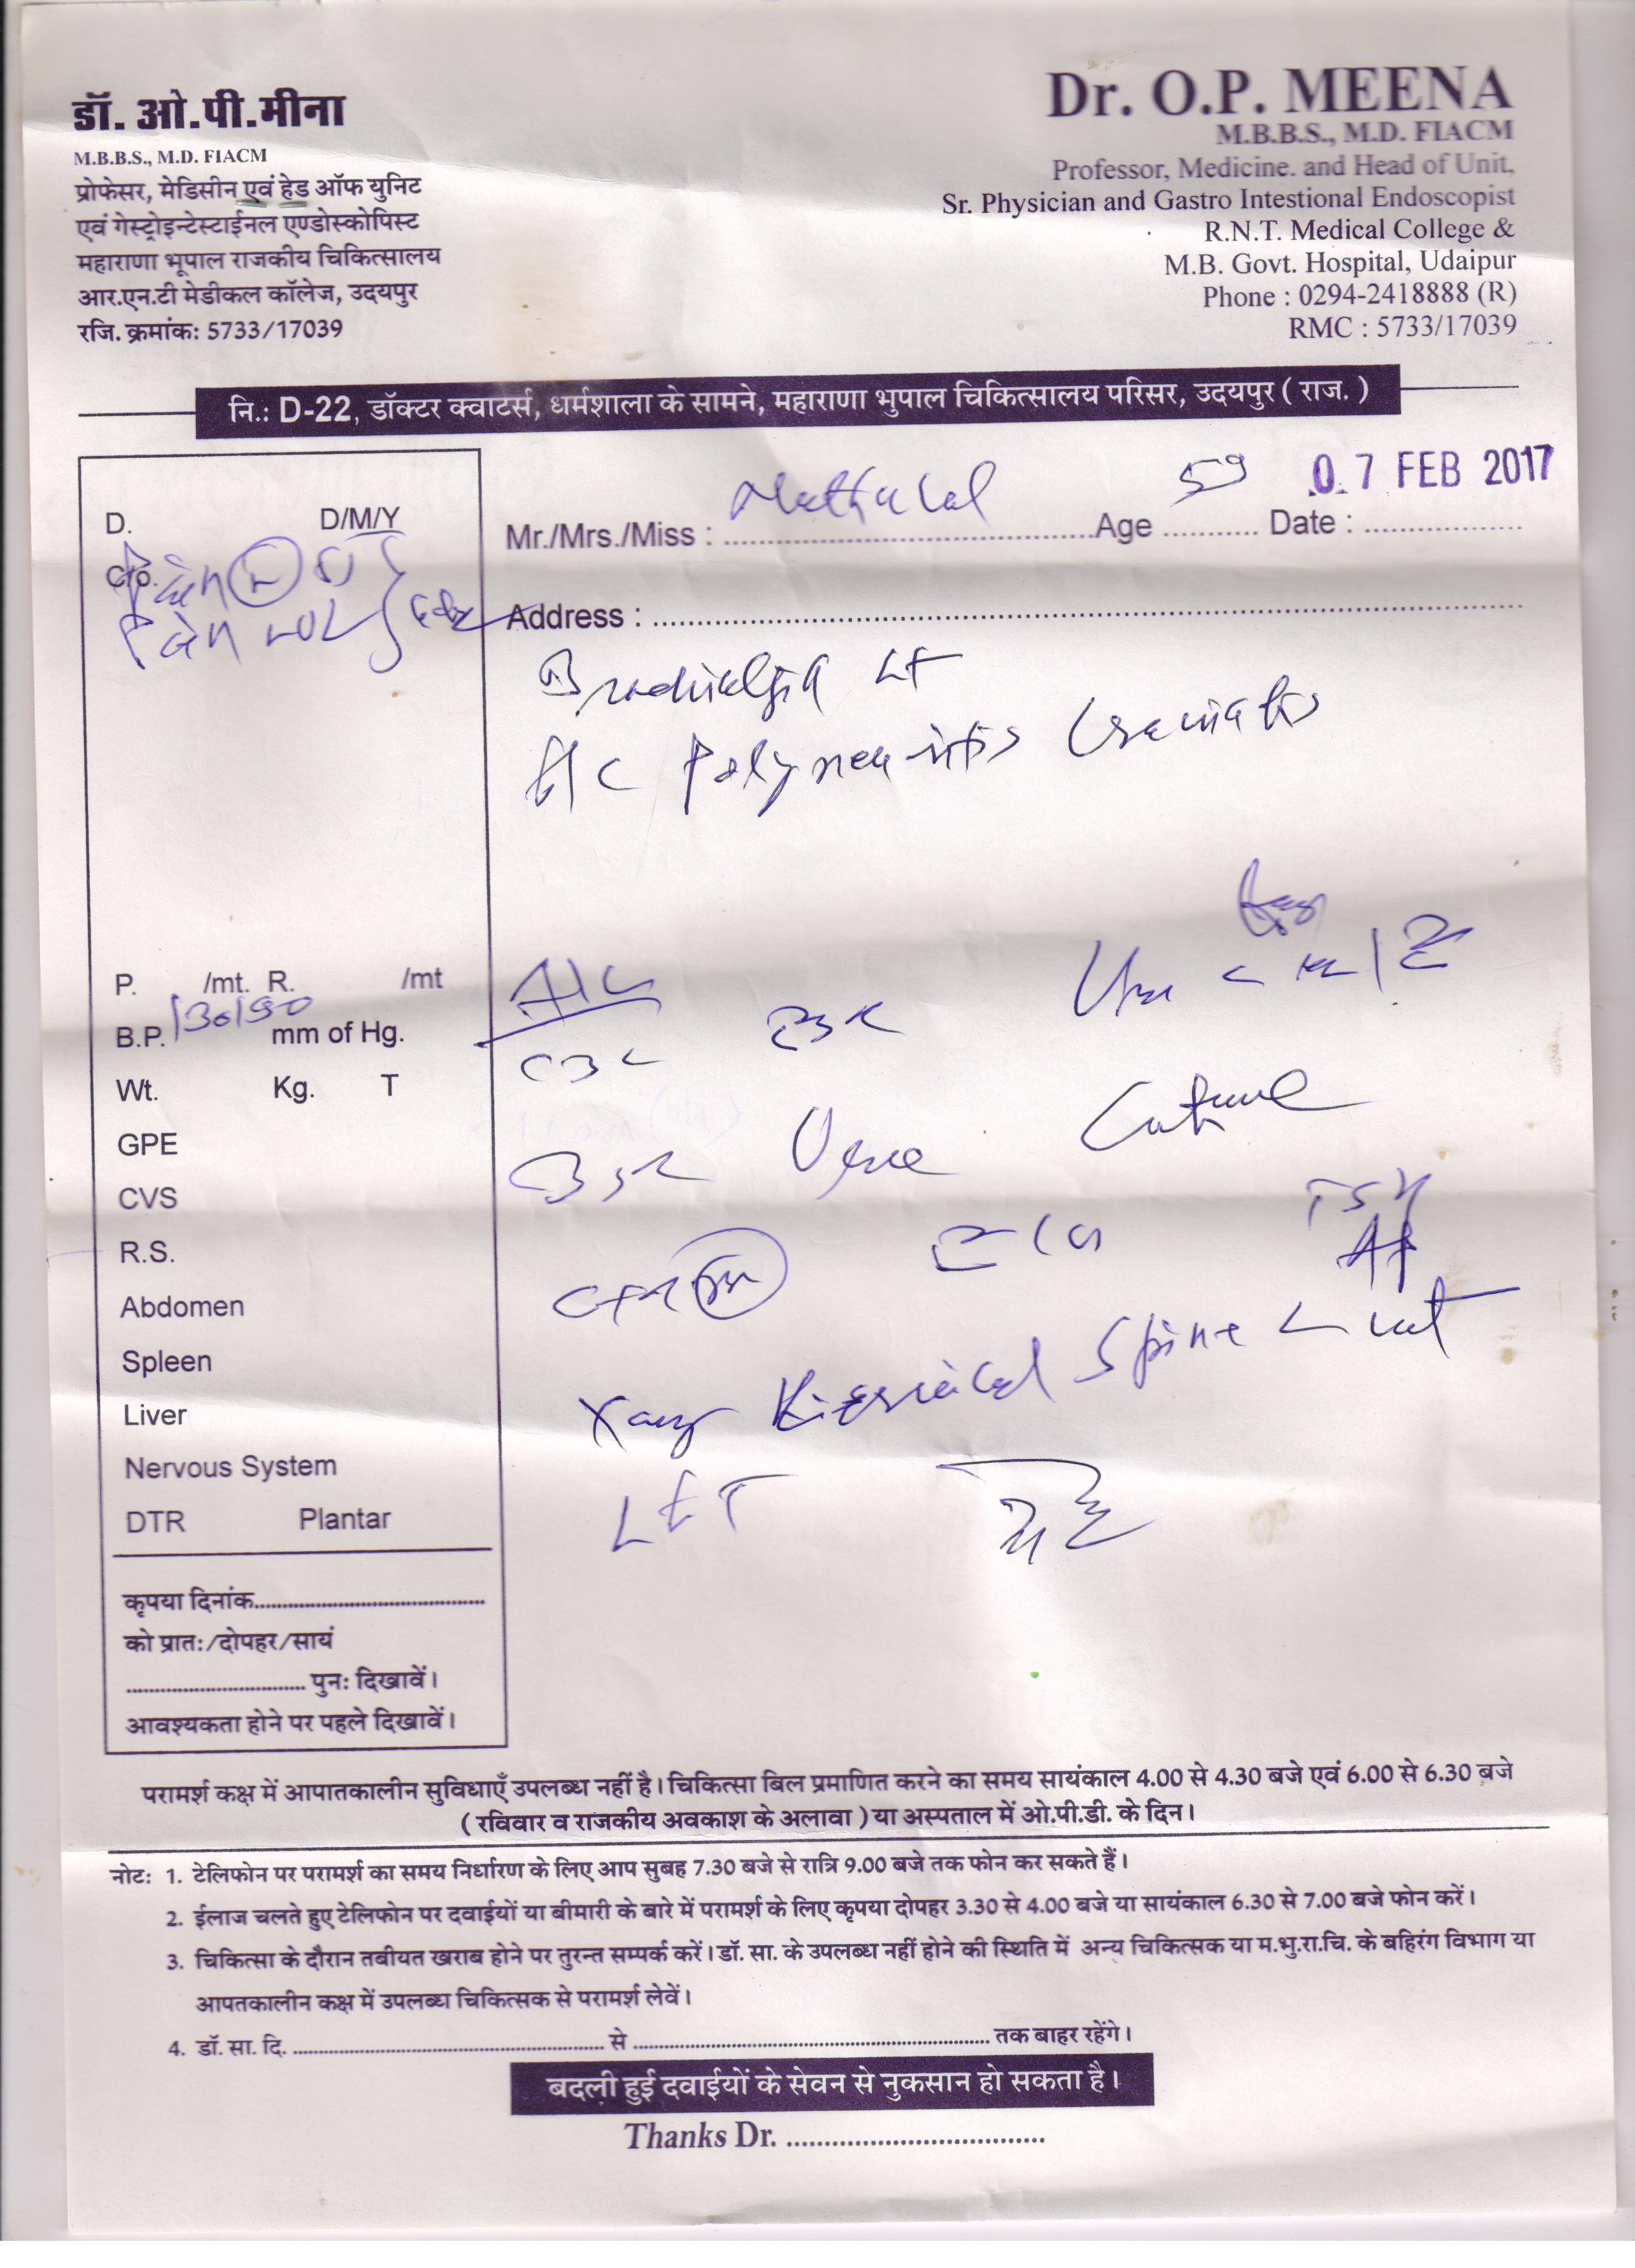 डॉ. ओ.पी.मीना
M.B.B.S., M.D. FIACM
प्रोफेसर, मेडिसीन एवं हेड ऑफ युनिट
एवं गेस्ट्रोइन्टेस्टाईनल एण्डोस्कोपिस्ट
महाराणा भूपाल राजकीय चिकित्सालय
आर.एन.टी मेडीकल कॉलेज, उदयपुर
रजि. क्रमांक: 5733/17039
Dr. O.P. MEENA
M.B.B.S., M.D. FIACM
Professor, Medicine. and Head of Unit,
Sr. Physician and Gastro Intestional Endoscopist
R.N.T. Medical College &
M.B. Govt. Hospital, Udaipur
Phone : 0294-2418888 (R)
RMC : 5733/17039
नि.: D-22, डॉक्टर क्वाटर्स, धर्मशाला के सामने, महाराणा भुपाल चिकित्सालय परिसर, उदयपुर ( राज. )
Mr./Mrs./Miss : Age 59 Date : 07 FEB 2017
Address :
D. D/M/Y
C/o.
Pain
Pain
Brachialgia Lt
Polyneuritis
P. /mt. R. /mt
B.P. 130/90 mm of Hg.
Wt. Kg. T
GPE
CVS
R.S.
Abdomen
Spleen
Liver
Nervous System
DTR Plantar
CBC
Urine Culture
TSH
Xray Spine Lat
AP
LFT
कृपया दिनांक
को प्रात:/दोपहर/सायं
पुन: दिखावें।
आवश्यकता होने पर पहले दिखावें।
परामर्श कक्ष में आपातकालीन सुविधाएँ उपलब्ध नहीं है। चिकित्सा बिल प्रमाणित करने का समय सायंकाल 4.00 से 4.30 बजे एवं 6.00 से 6.30 बजे
( रविवार व राजकीय अवकाश के अलावा ) या अस्पताल में ओ.पी.डी. के दिन।
नोट: 1. टेलिफोन पर परामर्श का समय निर्धारण के लिए आप सुबह 7.30 बजे से रात्रि 9.00 बजे तक फोन कर सकते हैं।
2. ईलाज चलते हुए टेलिफोन पर दवाईयों या बीमारी के बारे में परामर्श के लिए कृपया दोपहर 3.30 से 4.00 बजे या सायंकाल 6.30 से 7.00 बजे फोन करें।
3. चिकित्सा के दौरान तबीयत खराब होने पर तुरन्त सम्पर्क करें। डॉ. सा. के उपलब्ध नहीं होने की स्थिति में अन्य चिकित्सक या म.भु.रा.चि. के बहिरंग विभाग या
आपतकालीन कक्ष में उपलब्ध चिकित्सक से परामर्श लेवें।
4. डॉ. सा. दि. से तक बाहर रहेंगे।
बदली हुई दवाईयों के सेवन से नुकसान हो सकता है।
Thanks Dr.